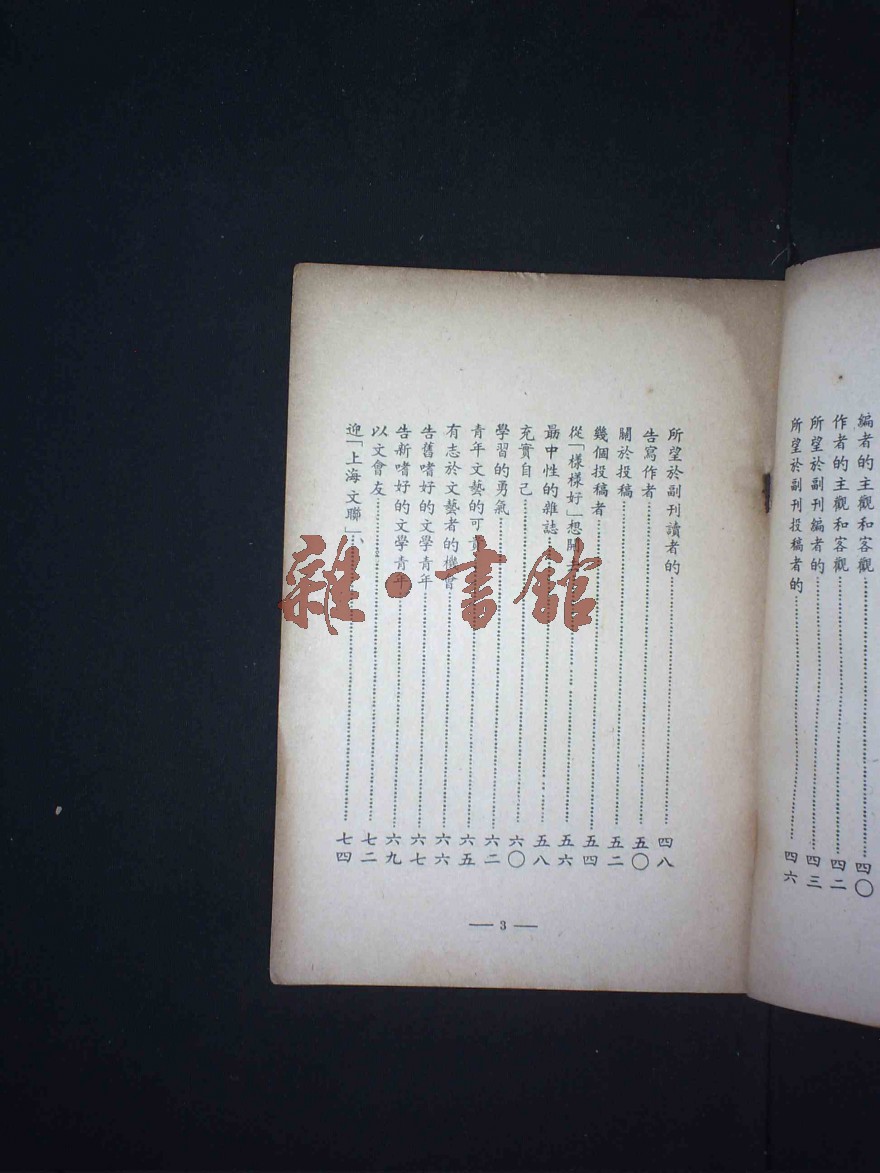 編者的主觀和客觀……四〇
作者的主觀和客觀……四二
所望於副刊編者的……四三
所望於副刊投稿者的……四六
所望於副刊讀者的……四八
告寫作者……五〇
關於投稿……五二
幾個投稿者……五四
從「樣樣好」想開……五六
最中性的雜誌……五八
充實自己……六〇
學習的勇氣……六二
青年文藝的可……六五
有志於文藝者的機會……六六
告舊嗜好的文學青年……六七
告新嗜好的文學青年……六九
以文會友……七二
迎「上海文聯」……七四
— 3 —
雜·書館